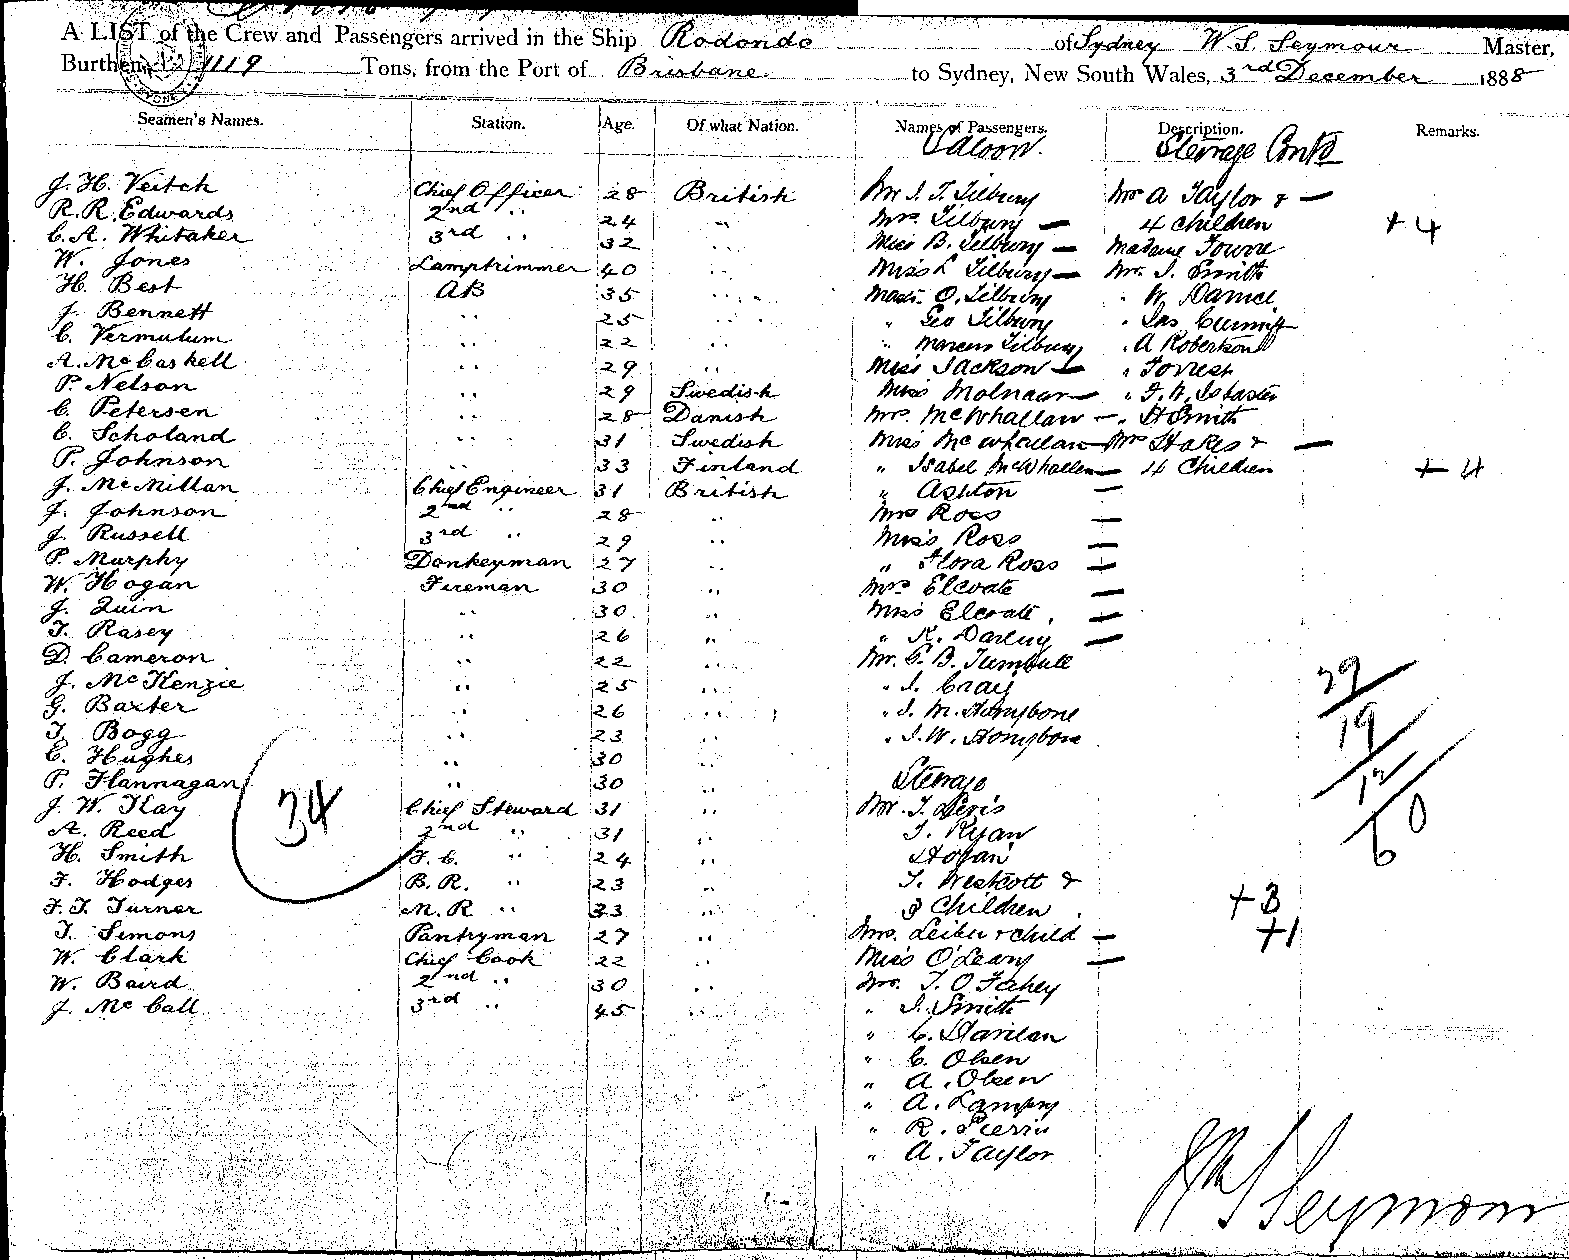 A LIST of the Crew and Passengers arrived in the Ship Rodondo of Sydney W. S. Seymour Master,
Burthen 1119 Tons, from the Port of Brisbane to Sydney, New South Wales, 3rd December 1888
Seamen's Names. Station. Age. Of what Nation. Names of Passengers. Description. Remarks.
Saloon. Steerage Contd
J. H. Veitch Chief Officer 28 British Mr J. T. Tilbury Mrs A Taylor & —
R. R. Edwards 2nd " 24 " Mrs. Tilbury — 4 Children + 4
C. A. Whitaker 3rd " 32 " Miss B. Tilbury — Madame
W. Jones Lamptrimmer 40 " Miss L Tilbury — Mr. J. Smith
H. Best AB 35 " Mast. O. Tilbury " W. Daniel
J. Bennett " 25 " " Geo Tilbury " Jas
C. Vermulum " 22 " " Marcus Tilbury " A Robertson
A. McCaskell " 29 " Miss Jackson — " Forrest
P. Nelson " 29 Swedish Miss Molnaar — " F. W. Isbaster
C. Petersen " 28 Danish Mrs. McWhallan — " H Smith
C. Scholand " 31 Swedish Miss McWhallan — Mrs Stokes & —
P. Johnson " 33 Finland " Isabel McWhallan — 4 Children + 4
J. McMillan Chief Engineer 31 British " Ashton —
J. Johnson 2nd " 28 " Mrs Ross —
J. Russell 3rd " 29 " Miss Ross —
P. Murphy Donkeyman 27 " " Flora Ross —
W. Hogan Fireman 30 " Mrs Elcoate —
J. Quin " 30 " Miss Elcoate —
T. Rasey " 26 " " K. Darling —
D. Cameron " 22 " Mr. C. B. Turnbull
J. McKenzie " 25 " " J. Craig
G. Baxter " 26 " " J. M. Honybone
T. Bogg " 23 " " J. W. Honybone
C. Hughes " 30
P. Flannagan " 30 Steerage
J. W. Kay Chief Steward 31 " Mr. T.
A. Reed 2nd " 31 " T. Ryan
H. Smith F. C. " 24 " Hogan
F. Hodges B. R. " 23 " T. Westcott &
F. T. Turner M. R " 33 " 3 Children + 3
T. Simons Pantryman 27 " Mrs. Leiber & child — + 1
W. Clark Chief Cook 22 " Miss O'Leary —
W. Baird 2nd " 30 " Mr. T. O Fahey
J. McCall 3rd " 45 " " J. Smith
" C. Hanlan
" C. Olsen
" A. Olsen
" A.
" R.
" A. Taylor
34
29
19
12
60
W S Seymour